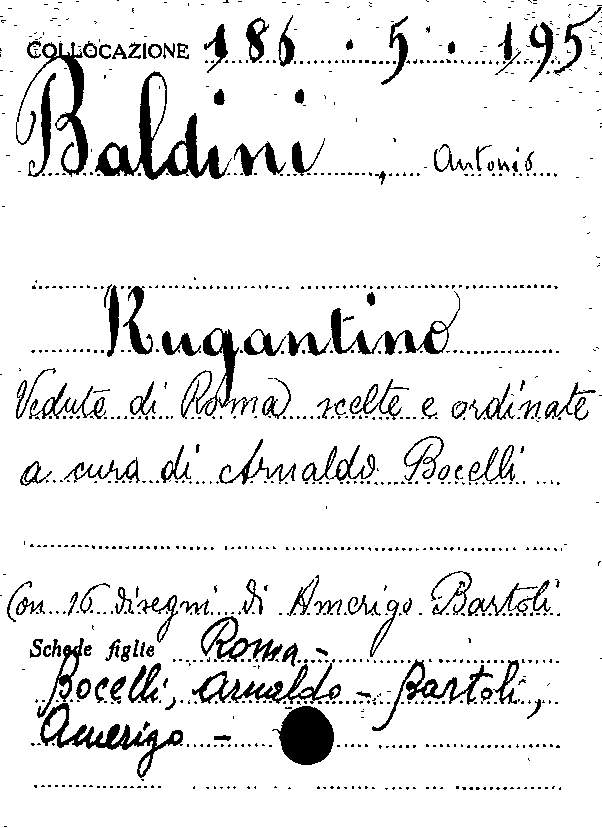 COLLOCAZIONE 186 . 5 . 195
Baldini , Antonio
Rugantino
Vedute di Roma scelte e ordinate
a cura di Arnaldo Bocelli
Con 16 disegni di Amerigo Bartoli
Schede figlie Roma -
Bocelli, Arnaldo - Bartoli,
Amerigo -